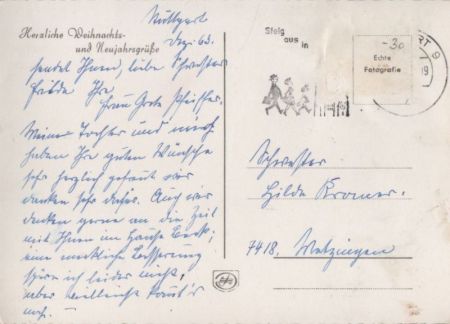 Herzliche Weihnachts-
und Neujahrsgrüße
Stuttgart
Dez. 63.
sendet Ihnen, liebe Schwester
Ihre
Frau Grete
Meine Tochter und mich
haben Ihre guten Wünsche
sehr herzlich gefreut wir
danken sehr dafür. Auch wir
denken gerne an die Zeit
mit Ihnen im Hause Beck;
eine merkliche Besserung
spüre ich leider nicht,
aber vielleicht kommt's
noch.
Steig
aus
in
-30
Echte
Fotografie
RT 9
19
Schwester
Hilde Kromer.
7418, Metzingen